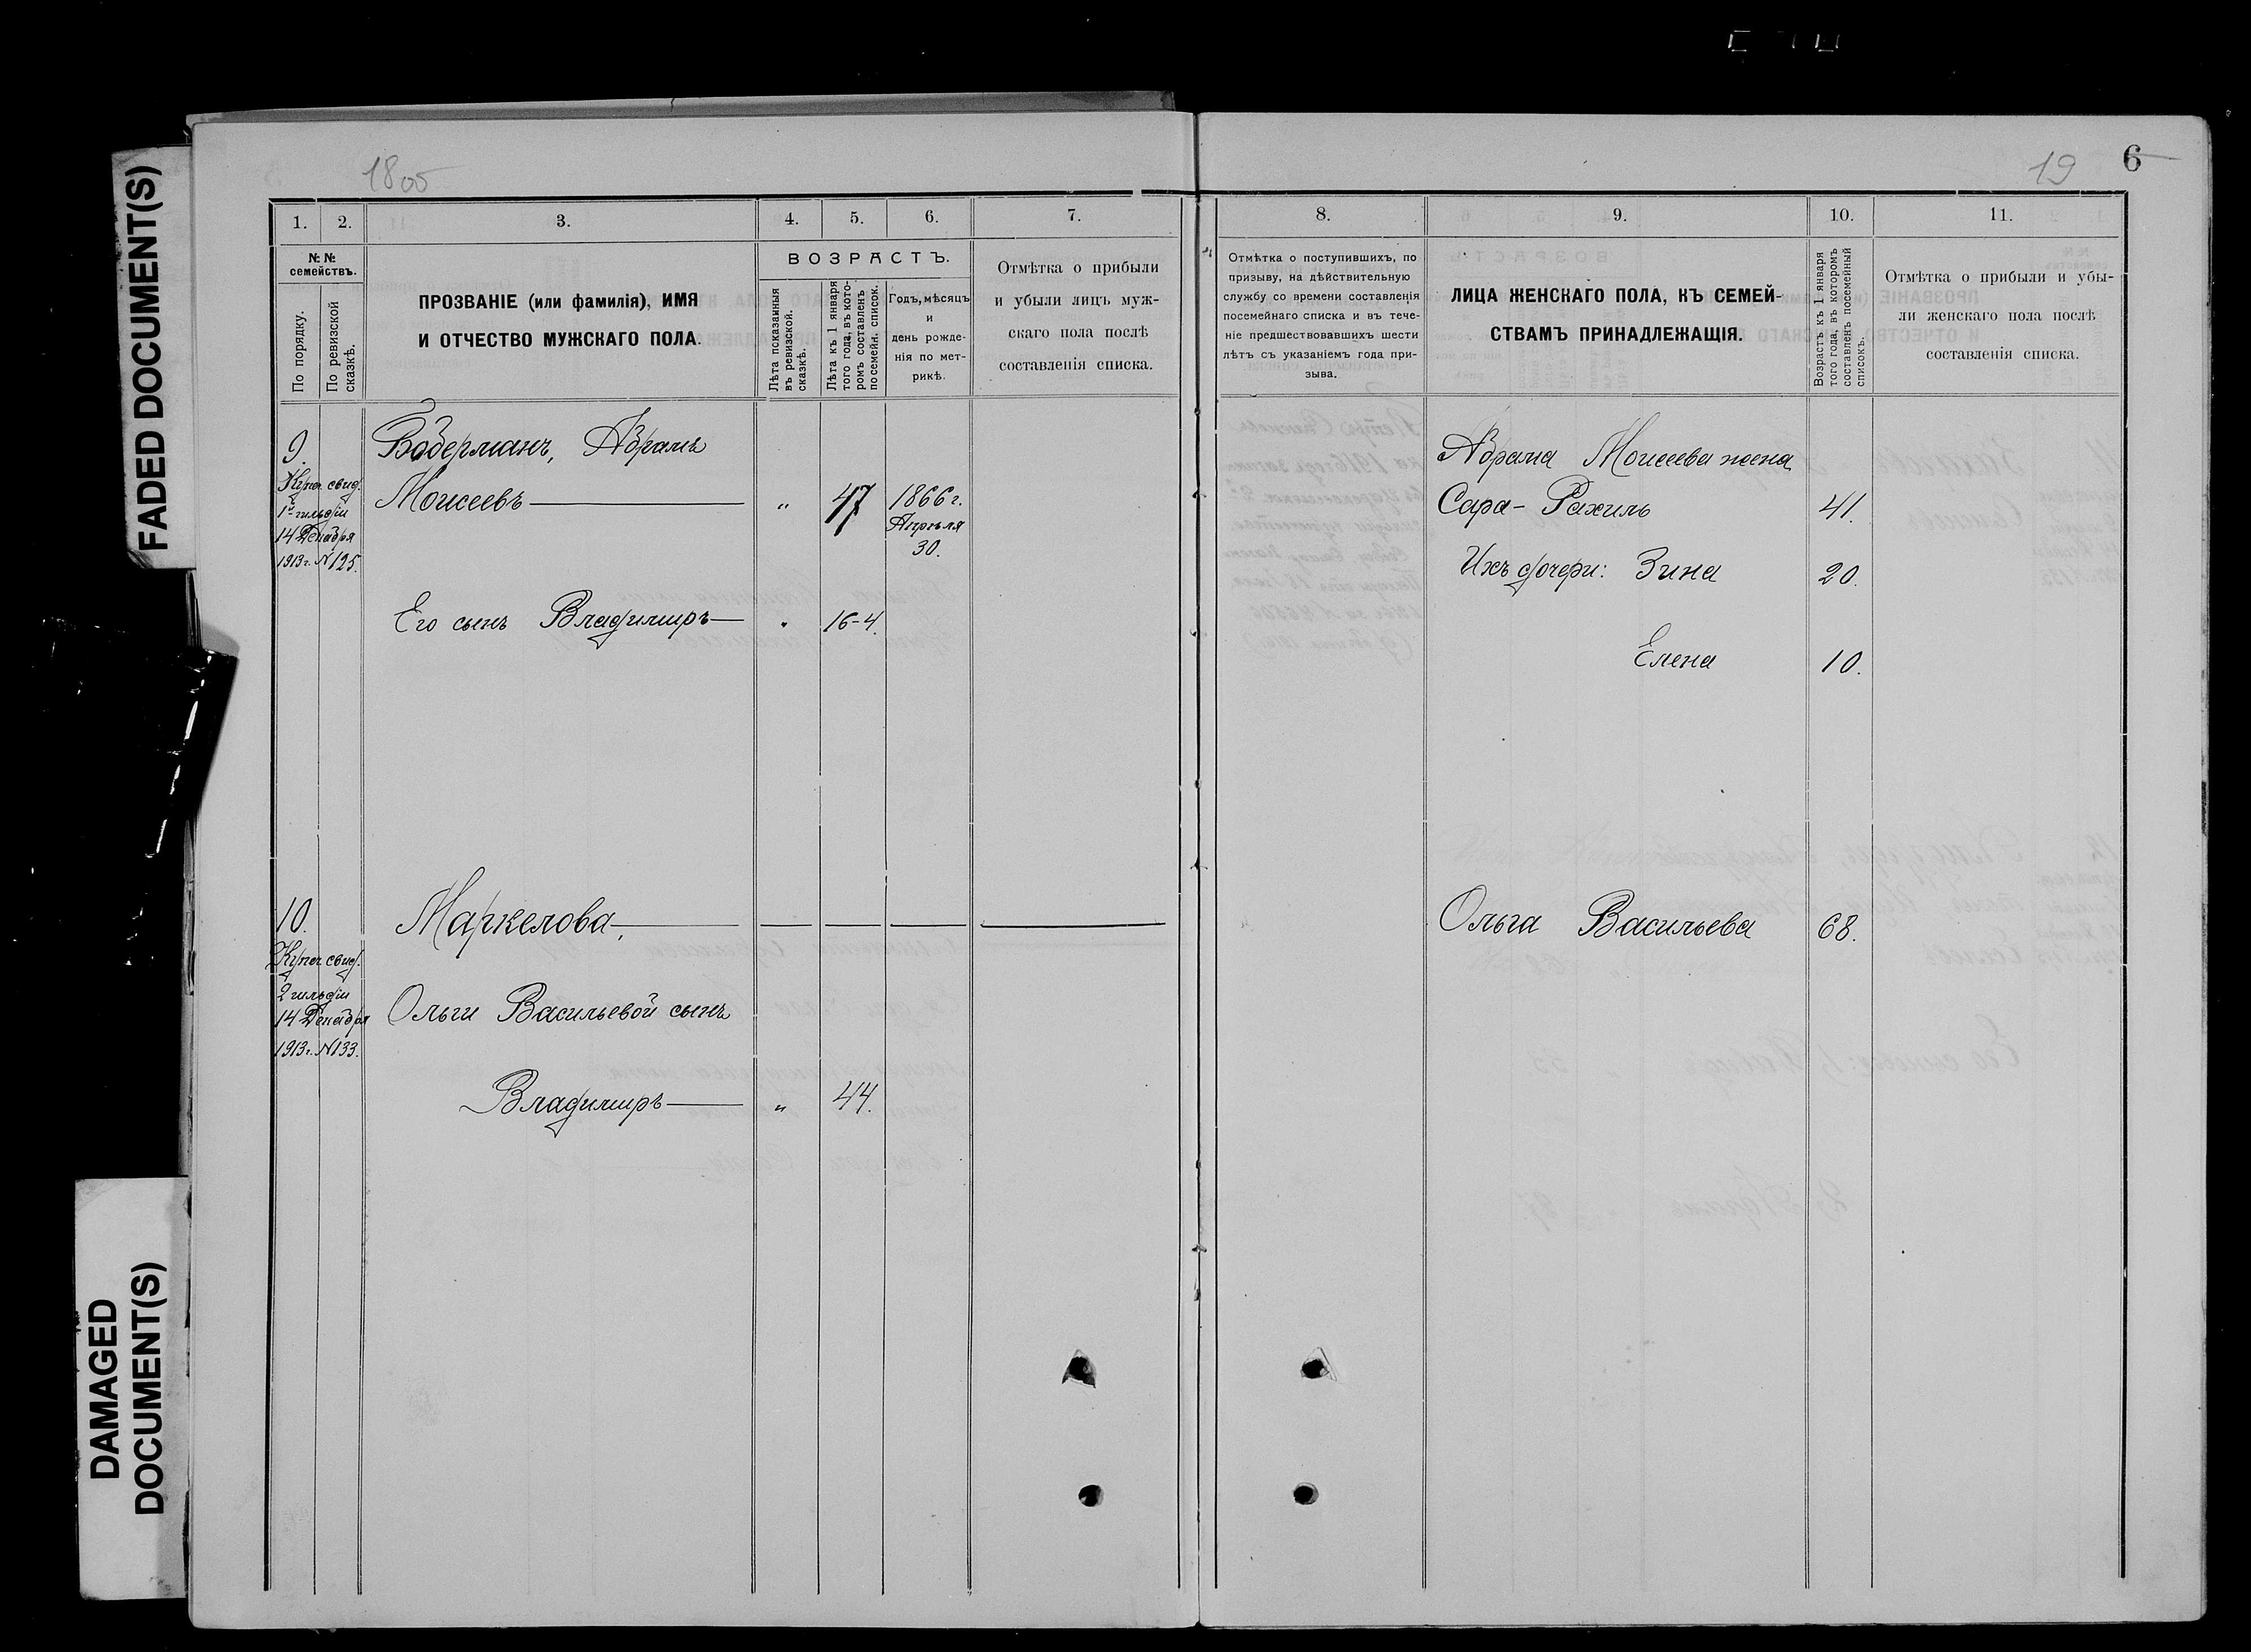 FADED DOCUMENT(S)
DAMAGED
DOCUMENT(S)
1805
19
6
1.
2.
3.
4.
5.
6.
7.
№ №
семействъ.
По порядку.
По ревизской
сказкѣ.
ПРОЗВАНІЕ (или фамилія), ИМЯ
И ОТЧЕСТВО МУЖСКАГО ПОЛА.
ВОЗРАСТЪ.
Лѣта показанныя
въ ревизской.
сказкѣ.
Лѣта къ 1 января
того года, въ кото-
ромъ составленъ
посемейн. список.
Годъ, мѣсяцъ
и
день рожде-
нія по мет-
рикѣ.
Отмѣтка о прибыли
и убыли лицъ муж-
скаго пола послѣ
составленія списка.
9.
Купеч. свид.
1й гильдіи
14 Декабря
1913г. N 125.
Бодерманъ, Абрамъ
Моисеевъ
"
47
1866 г.
Апрѣля
30.
Его сынъ Владимиръ
"
16-4.
10.
Купеч. свид.
2 гильдіи
14 Декабря
1913г. N 133.
Маркелова,
Ольги Васильевой сынъ
Владимиръ
"
44.
8.
9.
10.
11.
Отмѣтка о поступившихъ, по
призыву, на дѣйствительную
службу со времени составленія
посемейнаго списка и въ тече-
ніе предшествовавшихъ шести
лѣтъ съ указаніемъ года при-
зыва.
ЛИЦА ЖЕНСКАГО ПОЛА, КЪ СЕМЕЙ-
СТВАМЪ ПРИНАДЛЕЖАЩІЯ.
Возрастъ къ 1 января
того года, въ которомъ
составленъ посемейный
списокъ.
Отмѣтка о прибыли и убы-
ли женскаго пола послѣ
составленія списка.
Абрама Моисеева жена
Сара-Рахиль
41.
Ихъ дочери: Зина
20.
Елена
10.
Ольга Васильева
68.